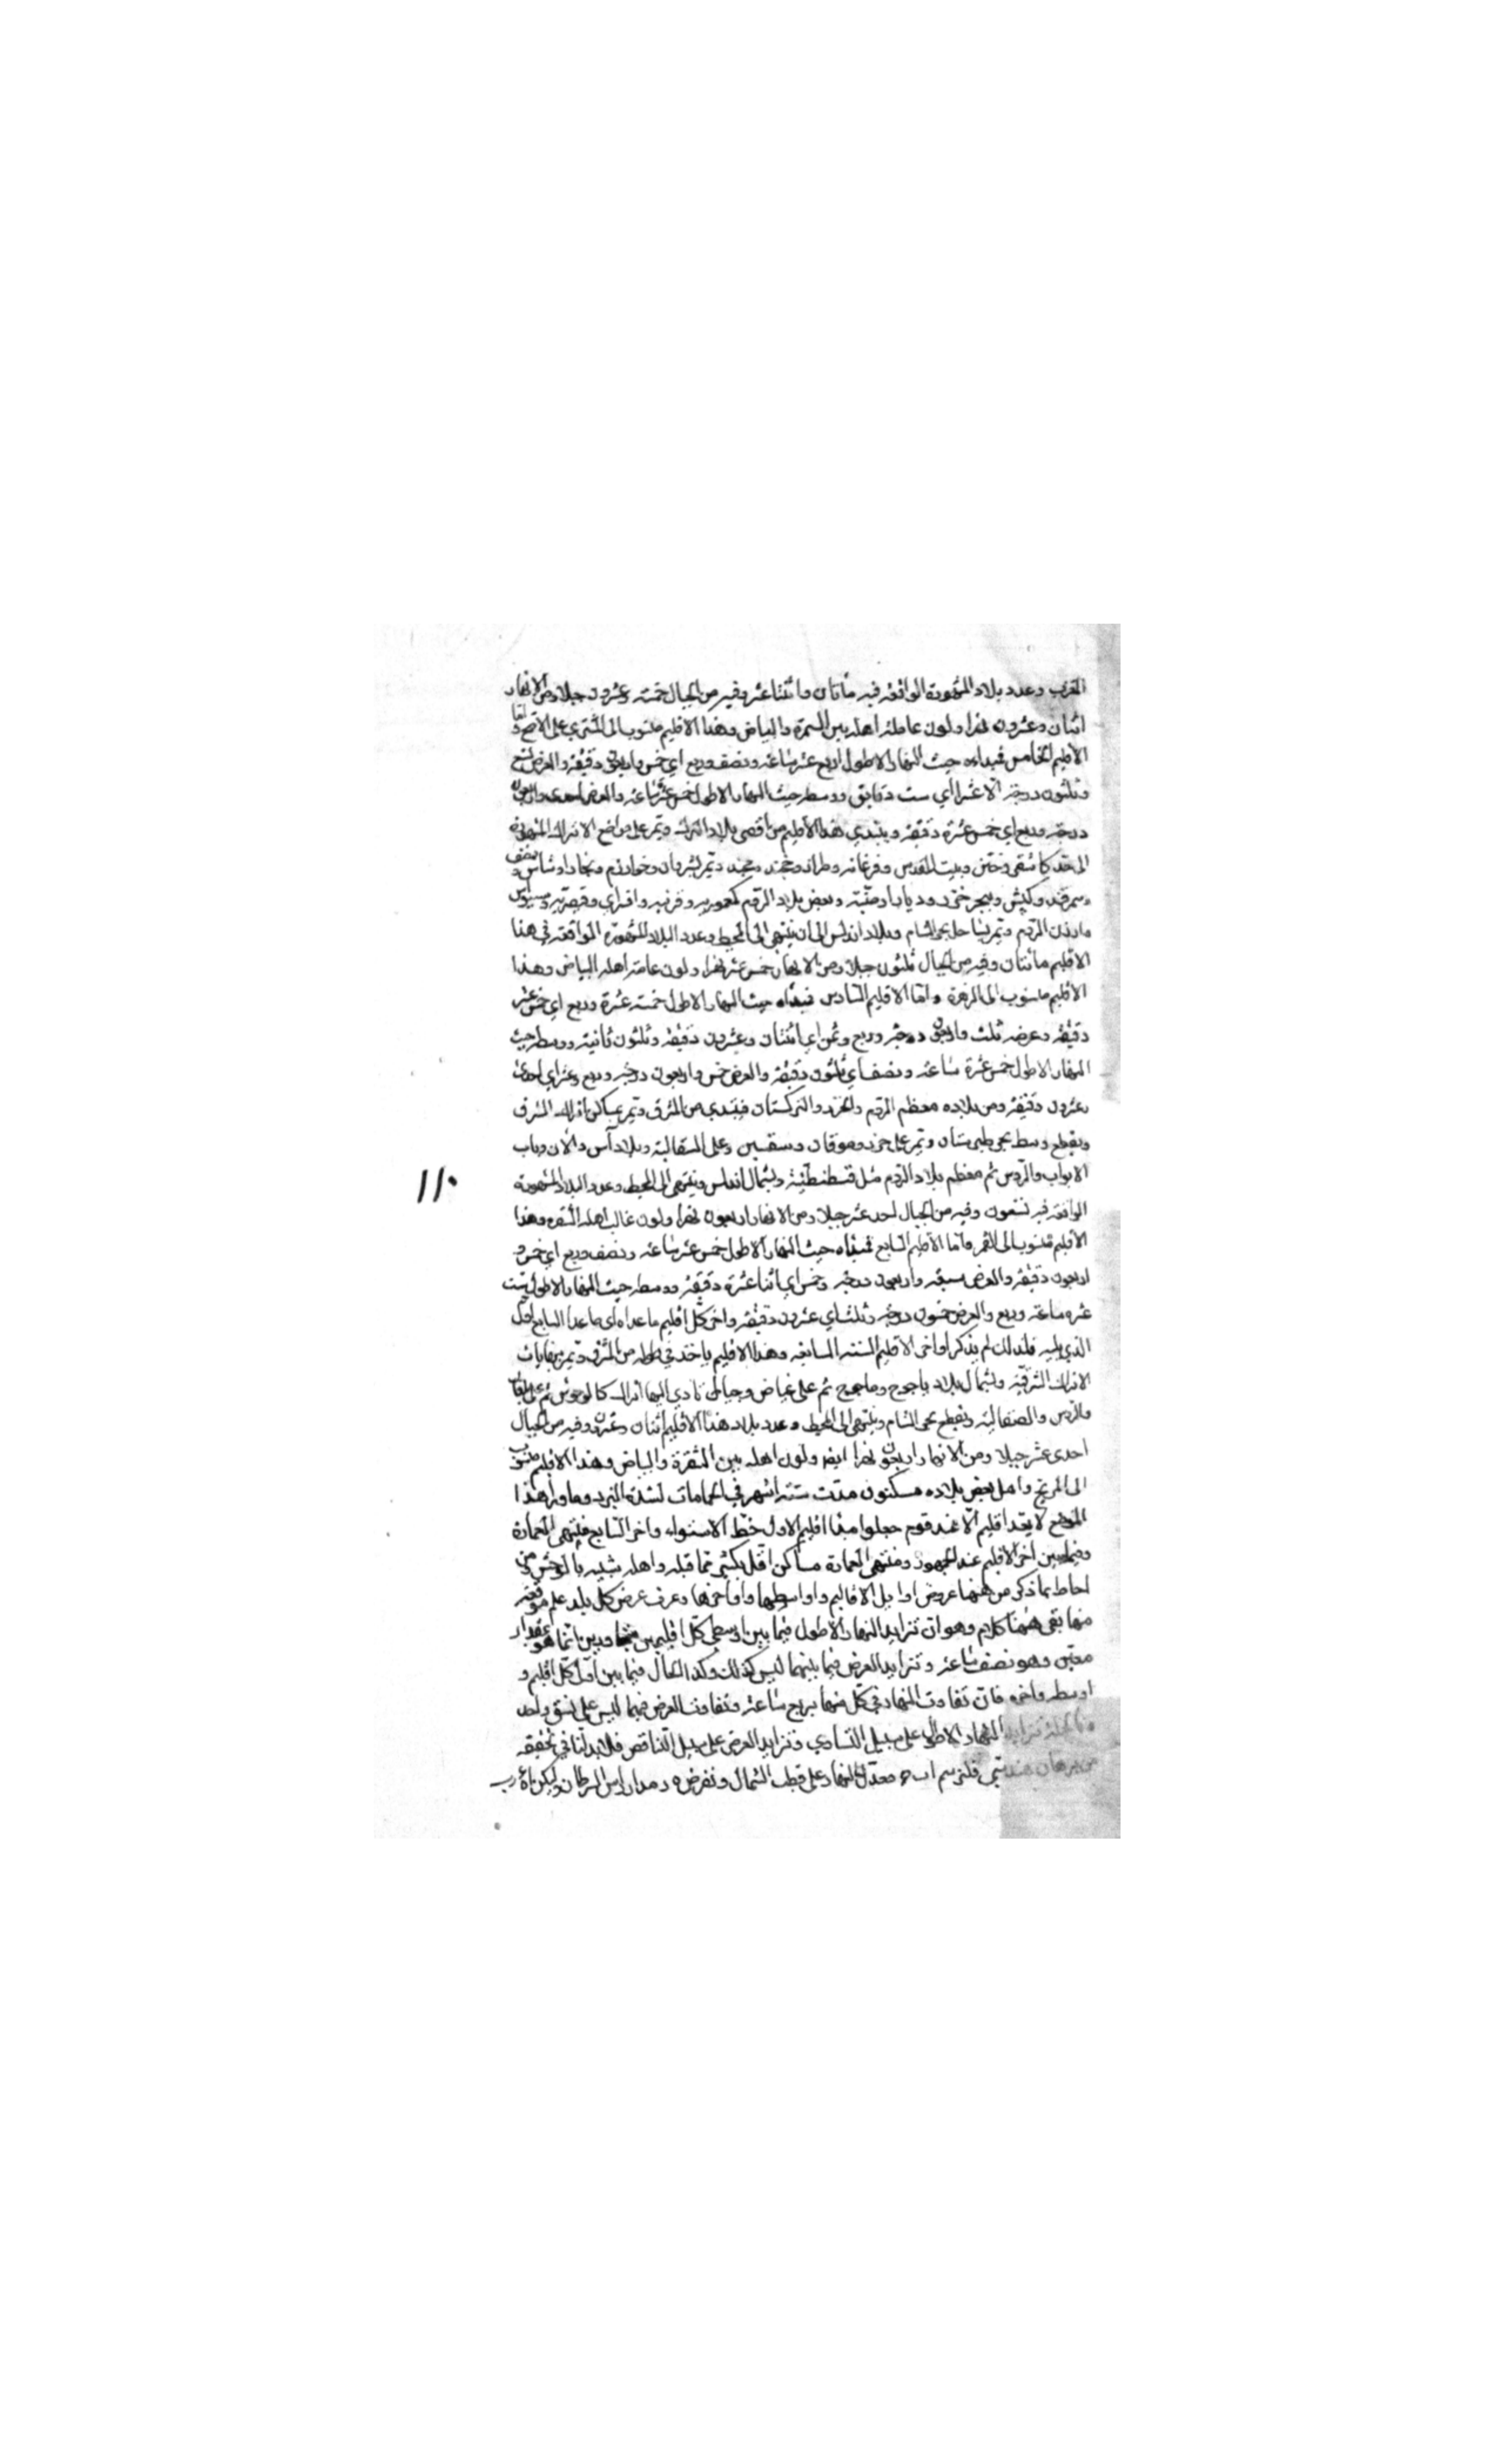 المغرب وعدد بلاد المشهورة الواقعة فيه مأتان واثنتا عشر وفيه من الجبال خمسة وعشرون جبلا ومن الانهار
اثنان وعشرون نهرا ولون عامة اهله بين السمرة والبياض وهذا الاقليم منسوب الى المشتري على الاصح واما
الاقليم الخامس فمبداءه حيث النهار الاطول اربع عشر ساعة ونصف وربع اي خمس واربعون دقيقة والعرض تسع
وثلثون درجة الا عشرا اي ست دقايق ووسطه حيث النهار الاطول خمس عشر ساعة والعرض احدى واربعون
درجة وربع اي خمس عشرة دقيقة ويبتدي هذا الاقليم من اقصى بلاد الترك ويمر على مواضع الاتراك المشهورة
الى حد كاشغر وختن وبيت المقدس وفرغانه وطراز وخجند ويمر بشروان وخوارزم وبخارا وشاش ونصف
وسمرقند وكيش وببحر خزر ودياباد منية وبعض بلاد الروم كعمورية وقرنيه واقسراي وقيصرية وسيواس
مارزن الروم ويمر بساحل بحر الشام وبلاد اندلس الى ان ينتهي الى المحيط وعدد البلاد المشهورة الواقعة في هذا
الاقليم مائتان وفيه من الجبال ثلثون جبلا ومن الانهار خمس عشر نهرا ولون عامة اهله البياض وهذا
الاقليم منسوب الى الزهرة واما الاقليم السادس فمبداه حيث النهار الاطول خمسة عشرة وربع اي خمس عشر
دقيقة وعرضه ثلث واربعون درجة وربع وثمن اي اثنتان وعشرون دقيقة وثلثون ثانية ووسطه حيث
النهار الاطول خمس عشرة ساعة ونصف اي ثلثون دقيقة والعرض خمس واربعون درجة وربع وعشر اي احدى
وعشرون دقيقة ومن بلاده معظم الروم والخزر والتركستان فيبتدي من المشرق ويمر بمساكن اتراك المشرق
ويقطع وسط بحر طبرستان ويمر على خزر وموقان وسقسين وعلى السقالبة وبلاد آس والان وباب
الابواب والروس ثم معظم بلاد الروم مثل قسطنطنية وبشمال اندلس وينتهي الى المحيط وعدد البلاد المشهورة
الواقعة فيه تسعون وفيه من الجبال احد عشر جبلا ومن الانهار اربعون نهرا ولون غالب اهله الشقره وهذا
الاقليم منسوب الى القمر واما الاقليم السابع فمبداه حيث النهار الاطول خمس عشر ساعة ونصف وربع اي خمس و
اربعون دقيقة والعرض سبعة واربعون درجة وخمس اي اثنا عشرة دقيقة ووسطه حيث النهار الاطول ست
عشره ساعة وربع والعرض خمسون درجة وثلث اي عشرون دقيقة واخر كل اقليم ما عداه اي ما عدا السابع اول
الذي يليه فلذلك لم يذكر اواخر الاقليم الستة السابقة وهذا الاقليم ياخذ في طوله من المشرق ويمر بنهايات
الاتراك الشرقية وبشمال بلاد ياجوج وماجوج ثم على غياض وجبال تادي اليها اتراك كالوحوش ثم على بلغار
والروس والصقالبة ويقطع بحر الشام وينتهي الى المحيط وعدد بلاد هذا الاقليم اثنان وعشرون وفيه من الجبال
احدى عشر جبلا ومن الانهار اربعون نهرا ايضا ولون اهله بين الشقرة والبياض وهذا الاقليم منسوب
الى المريخ واهل بعض بلاده مسكنون مدت ستة اشهر في الحمامات لشدة البرد وما وراء هذا
الموضع لا يعد اقليم الا عند قوم جعلوا مبدا اقليم الاول خط الاستواء واخر السابع منتهى العمارة
وفيما بين آخر الاقليم عند الجمهور ومنتهى العمارة مساكن اقل بكثير مما قبله واهله شبيه بالوحش ومن
احاط بما ذكر من ههنا عروض اوايل الاقاليم واواسطها واواخرها وعرف عرض كل بلد علم موقعه
منها بقي ههنا كلام وهو ان تزايد النهار الاطول فيما بين اوسطي كل اقليمين متجاورين انما هو بمقدار
معين وهو نصف ساعة وتزايد العرض فيما بينهما ليس كذلك وكذا الحال فيما بين اول كل اقليم و
اوسطه واخره فان تفاوت النهار في كل منها بربع ساعة وتفاوت العرض فيها ليس على نسق واحد
وبالجملة تزايد النهار الاطول على سبيل التساوي وتزايد العرض على سبيل التناقص فلا بد لنا في تحقيقه
من برهان هندسي فلنرسم ا ب ج معدل النهار على قطب الشمال ونفرض ه د مدار راس السرطان وليكن
١١٠